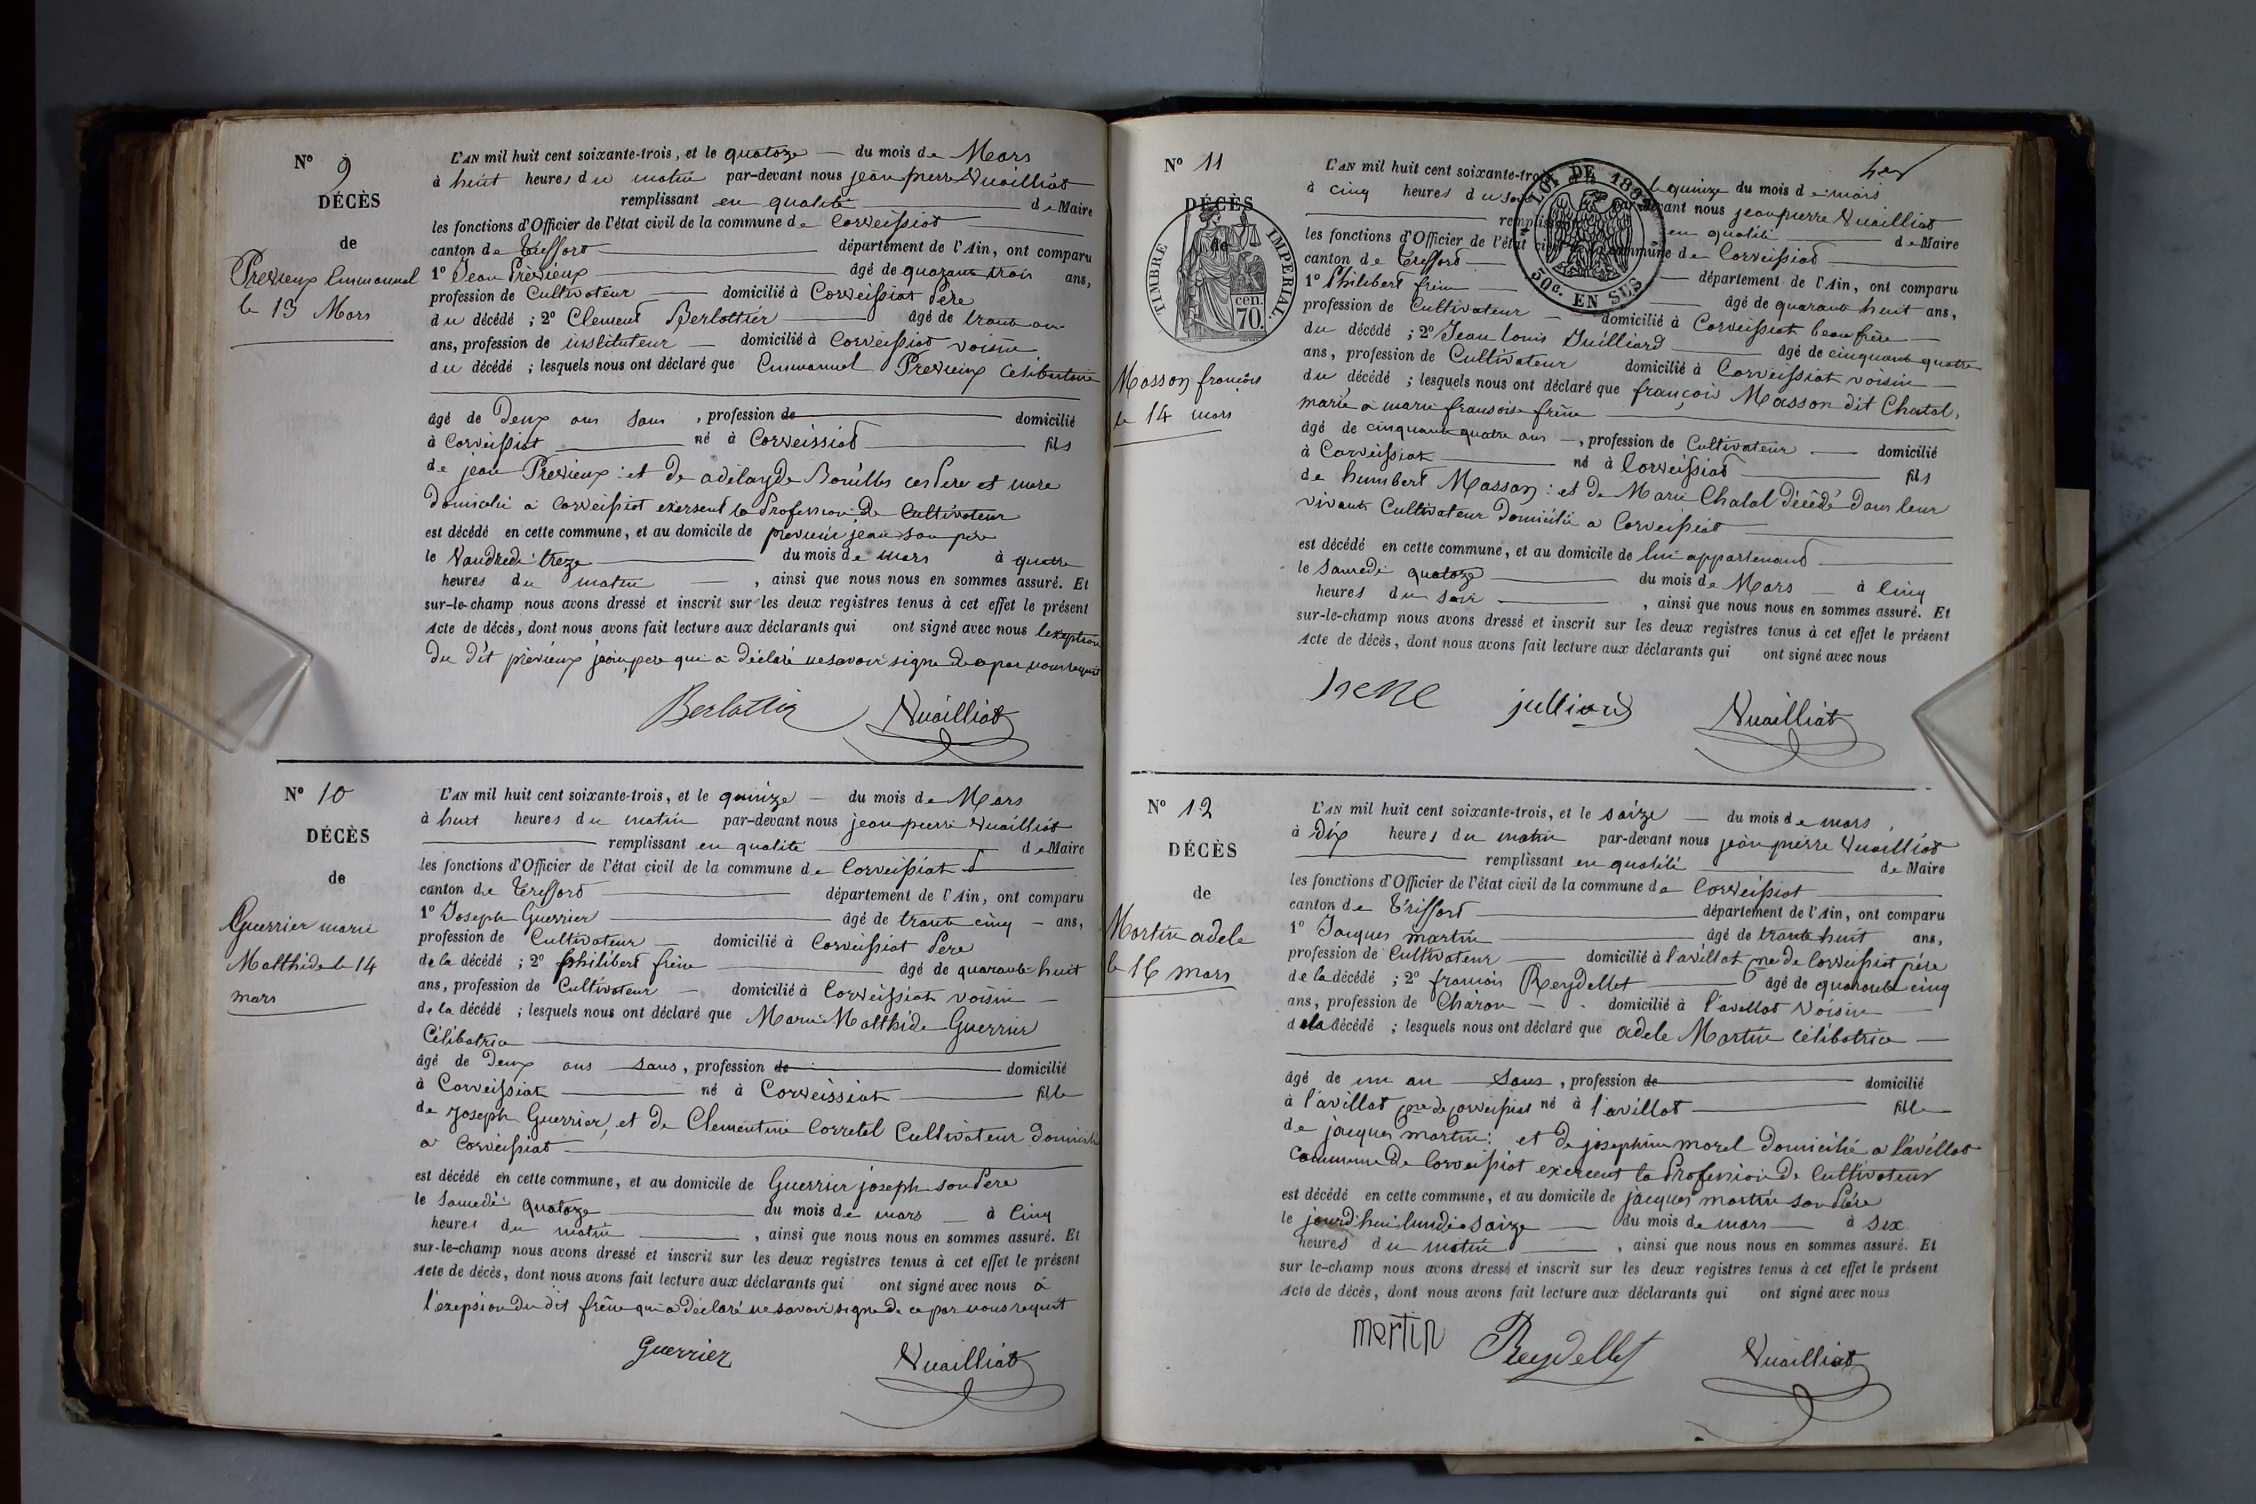 N° 9
DÉCÈS
de
Previeux Emmanuel
le 13 Mars
L'AN mil huit cent soixante-trois, et le quatoze — du mois de Mars
à huit heures du matin par-devant nous jean pierre Vuailliat
remplissant en qualité de Maire
les fonctions d'Officier de l'état civil de la commune de Corveissiat
canton de Treffort département de l'Ain, ont comparu
1° Jean Prévieux âgé de quarante trois ans,
profession de Cultivateur domicilié à Corveissiat Père
du décédé ; 2° Clement Berlottier âgé de trante un
ans, profession de instituteur domicilié à Corveissiat voisin
du décédé ; lesquels nous ont déclaré que Emmanuel Previeux Célibataire
âgé de Deux ans sans, profession de domicilié
à Corveissiat né à Corveissiat fils
de jean Previeux : et de adélayde Bouilles ces Pere et mere
domicilié a Corveissiat exersent la Profession de Cultivateur
est décédé en cette commune, et au domicile de previeux jean son père
le Vandredi treze du mois de mars à quatre
heures du matin, ainsi que nous nous en sommes assuré. Et
sur-le-champ nous avons dressé et inscrit sur les deux registres tenus à cet effet le présent
Acte de décès, dont nous avons fait lecture aux déclarants qui ont signé avec nous lexeption
du dit prévieux jean, pere qui a déclaré ne savoir signe de ce par nous requit
Berlottier Vuailliat
N° 10
DÉCÈS
de
Guerrier marie
Malthide le 14
mars
L'AN mil huit cent soixante-trois, et le quinze — du mois de Mars
à huit heures du matin par-devant nous jean pierre Vuailliat
remplissant en qualité de Maire
les fonctions d'Officier de l'état civil de la commune de Corveissiat
canton de Treffort département de l'Ain, ont comparu
1° Joseph Guerrier âgé de trante cinq — ans,
profession de Cultivateur domicilié à Corveissiat Pere
de la décédé ; 2° philibert frène âgé de quarante huit
ans, profession de Cultivateur domicilié à Corveissiat voisin
de la décédé ; lesquels nous ont déclaré que Marie Malthide Guerrier
Célibatrice
âgé de Deux ans sans, profession de domicilié
à Corveissiat né à Corveissiat fille
de Joseph Guerrier, et de Clementine Corretel Cultivateur domicilié
a Corveissiat
est décédé en cette commune, et au domicile de Guerrier joseph son Pere
le Samedi quatoze du mois de mars à Cinq
heures du matin, ainsi que nous nous en sommes assuré. Et
sur-le-champ nous avons dressé et inscrit sur les deux registres tenus à cet effet le présent
Acte de décès, dont nous avons fait lecture aux déclarants qui ont signé avec nous à
l'exepsion du dit frène qui a déclaré ne savoir signe de ce par nous requit
Guerrier Vuailliat
N° 11
DÉCÈS
de
TIMBRE IMPÉRIAL.
70. cen.
Masson françois
le 14 mars
LOI DE 1862
50c. EN SUS
L'AN mil huit cent soixante-trois, et le quinze du mois de mars
à cinq heures du soir par-devant nous jean pierre Vuailliat
remplissant en qualité de Maire
les fonctions d'Officier de l'état civil de la commune de Corveissiat
canton de Treffort département de l'Ain, ont comparu
1° Philibert frène âgé de quarante huit ans,
profession de Cultivateur domicilié à Corveissiat beau frère
du décédé ; 2° Jean Louis Juilliard âgé de cinquante quatre
ans, profession de Cultivateur domicilié à Corveissiat voisin
du décédé ; lesquels nous ont déclaré que françois Masson dit Chatal,
marié a marie fransoise frène
âgé de cinquante quatre ans —, profession de Cultivateur domicilié
à Corveissiat né à Corveissiat fils
de humbert Masson : et de Marie Chatal décédé dans leur
vivants Cultivateur domicilié a Corveissiat
est décédé en cette commune, et au domicile de lui appartenant
le Samedi quatoze du mois de Mars à Cinq
heures du soir, ainsi que nous nous en sommes assuré. Et
sur-le-champ nous avons dressé et inscrit sur les deux registres tenus à cet effet le présent
Acte de décès, dont nous avons fait lecture aux déclarants qui ont signé avec nous
frene julliard Vuailliat
N° 12
DÉCÈS
de
Martin adele
le 16 mars
L'AN mil huit cent soixante-trois, et le saize — du mois de mars
à Dix heures du matin par-devant nous jean pierre Vuailliat
remplissant en qualité de Maire
les fonctions d'Officier de l'état civil de la commune de Corveissiat
canton de Triffort département de l'Ain, ont comparu
1° Jacques martin âgé de trante huit ans,
profession de Cultivateur domicilié à l'avillat Cne de Corveissiat père
de la décédé ; 2° francois Reydellet âgé de quarante cinq
ans, profession de Charon domicilié à l'avillat Voisin
de la décédé ; lesquels nous ont déclaré que adele Martin célibatrice
âgé de un an sans, profession de domicilié
à l'avillat Cne de Corveissiat né à l'avillat fille
de jacques martin : et de josephine morel domicilié a l'avillat
Commune de Corveissiat exercent la Profession de Cultivateur
est décédé en cette commune, et au domicile de jacques martin son Père
le jourd'hui lundi saize du mois de mars à six
heures du matin, ainsi que nous nous en sommes assuré. Et
sur le-champ nous avons dressé et inscrit sur les deux registres tenus à cet effet le présent
Acte de décès, dont nous avons fait lecture aux déclarants qui ont signé avec nous
martin Reydellet Vuailliat